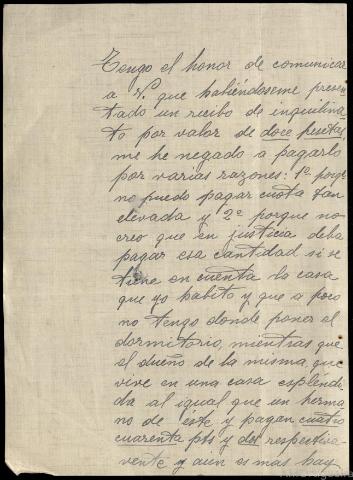 Tengo el honor de comunicar
a V. que habiéndoseme presen-
tado un recibo de inquilina-
to por valor de doce pesetas,
me he negado a pagarlo
por varias razones: 1º porque
no puedo pagar cuota tan
elevada y 2º porque no
creo que en justicia deba
pagar esa cantidad si se
tiene en cuenta la casa
que yo habito y que a poco
no tengo donde poner el
dormitorio, mientras que
el dueño de la misma, que
vive en una casa esplendi-
da al igual que un herma-
no de éste y pagan cuatro
cuarenta pts y dos respectiva-
mente y aún es mas hay